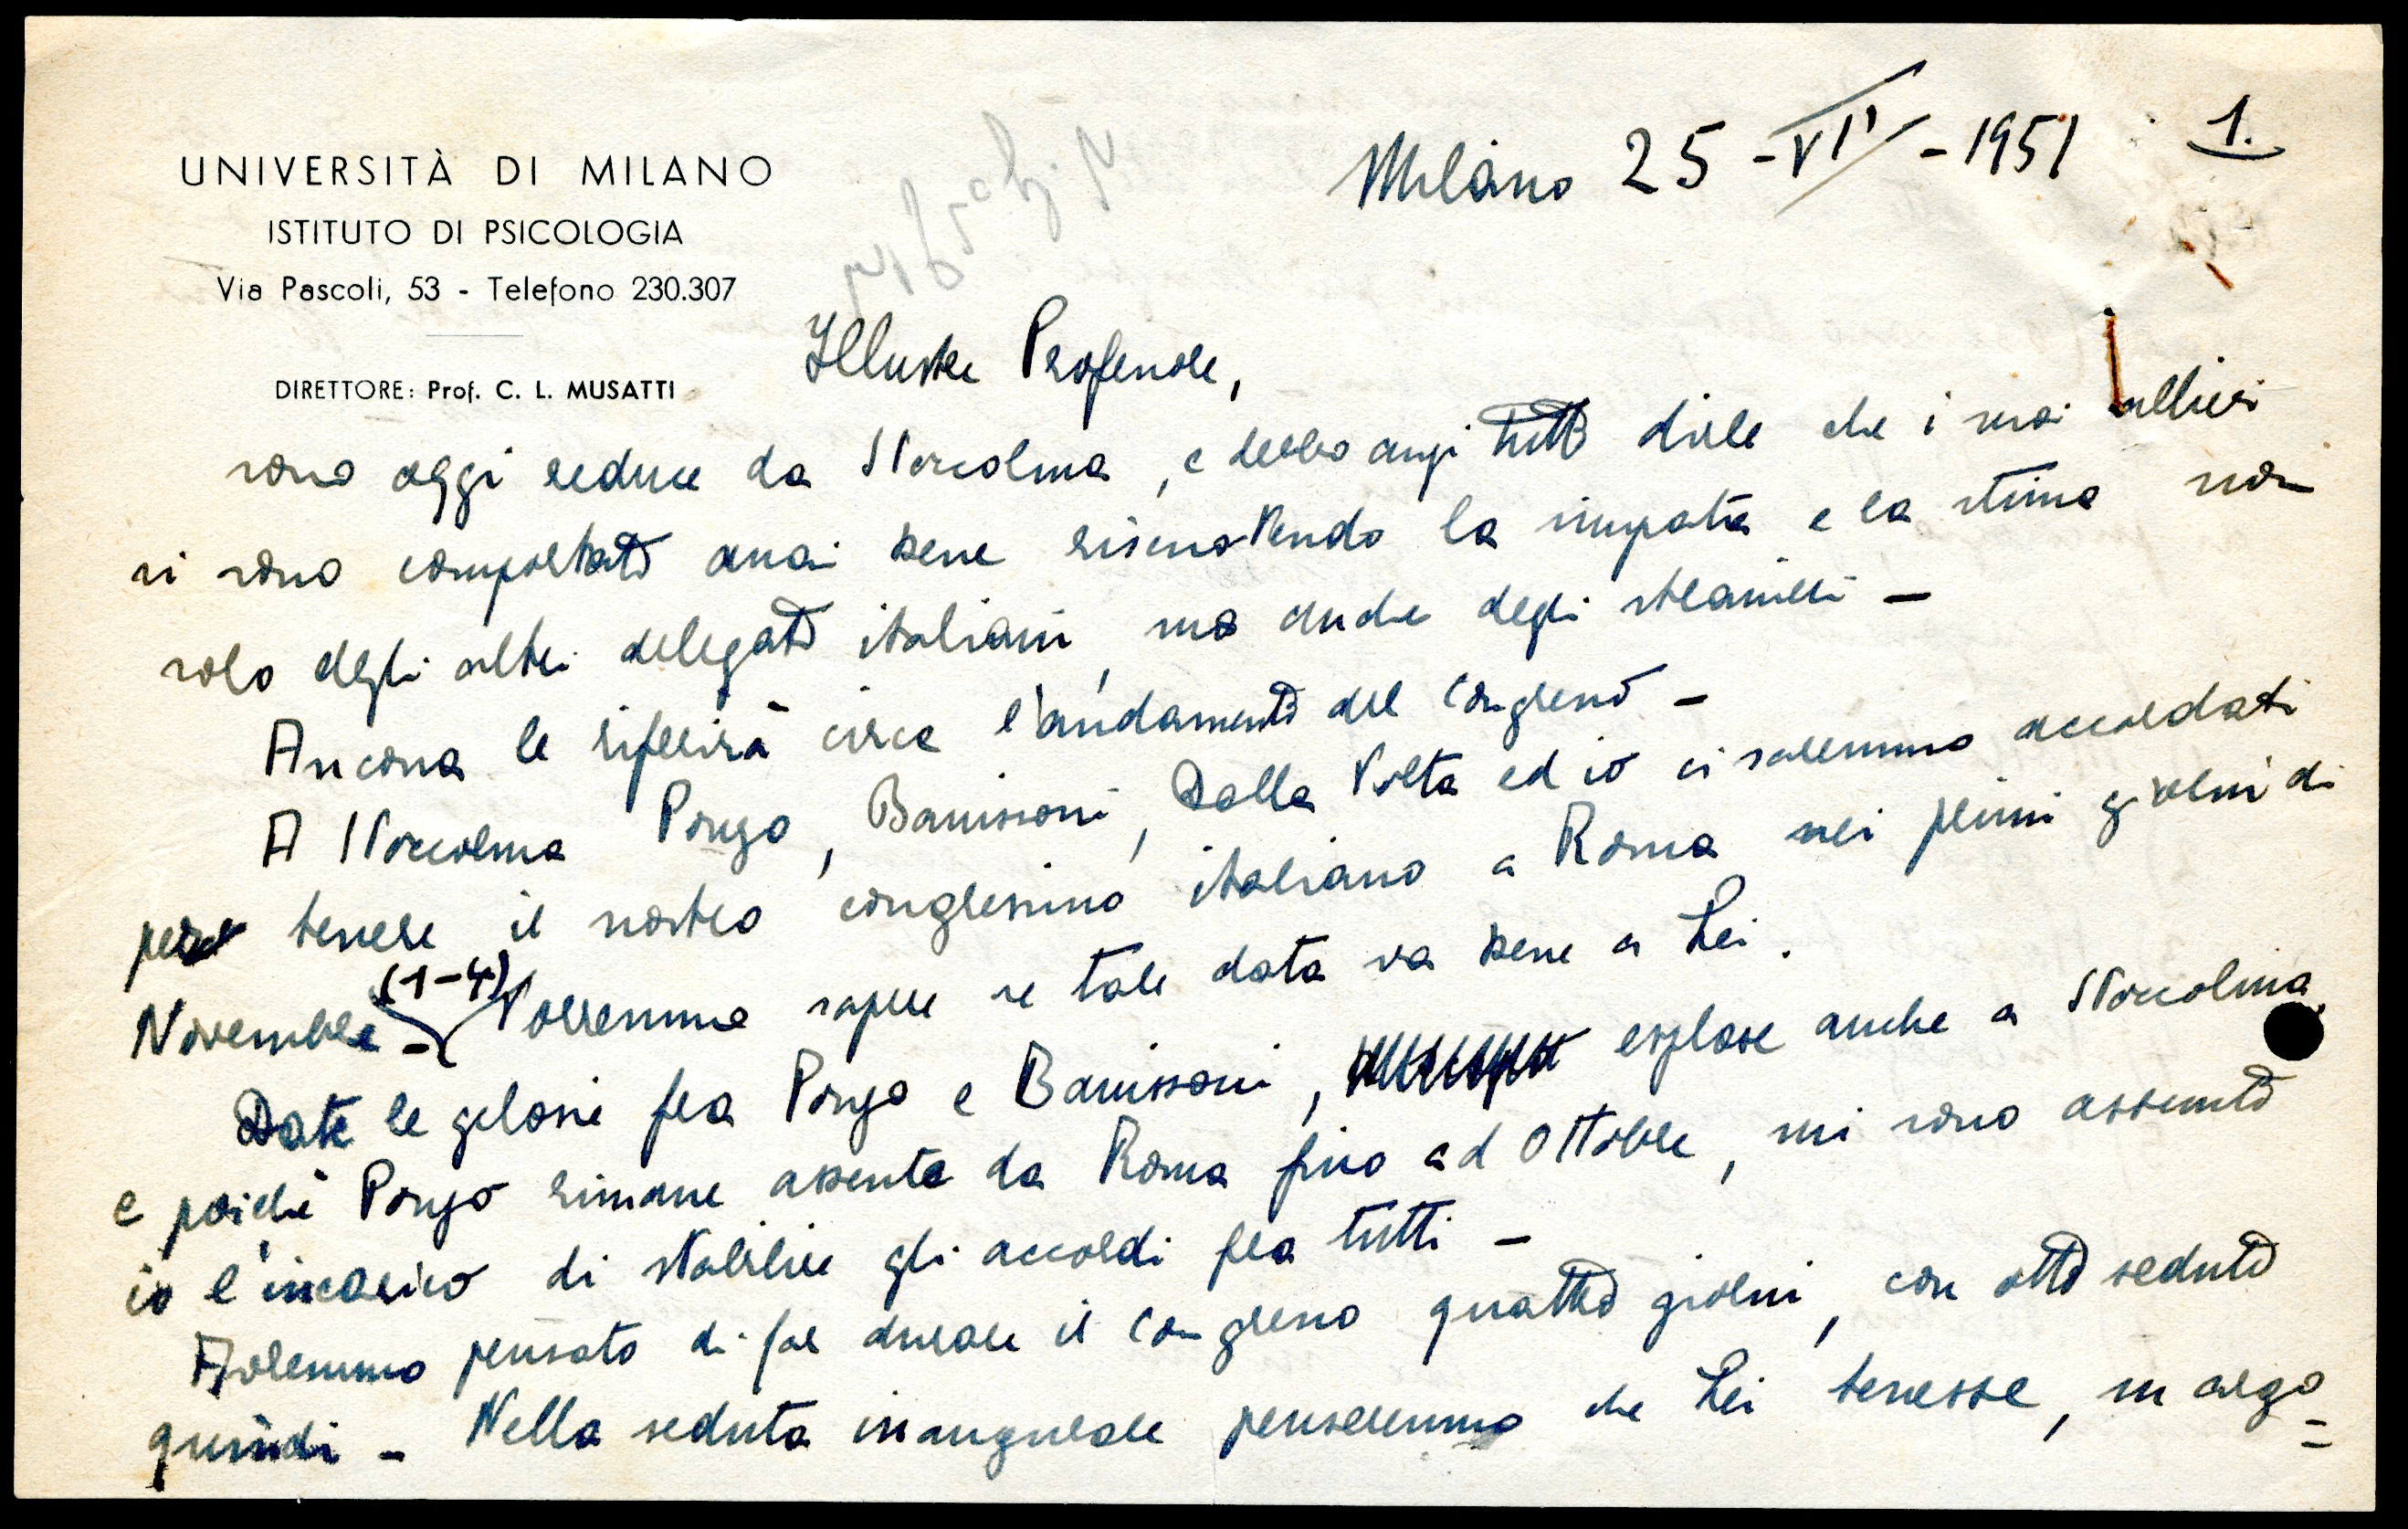 Milano 25-VII-1951 1.
UNIVERSITÀ DI MILANO
ISTITUTO DI PSICOLOGIA
Via Pascoli, 53 - Telefono 230.307
DIRETTORE: Prof. C. L. MUSATTI
Illustre Professore,
sono oggi reduce da Stoccolma, e debbo anzi tutto dirle che i suoi allievi
si sono comportati assai bene riscuotendo la simpatia e la stima non
solo degli altri delegati italiani, ma anche degli stranieri -
Ancona le riferirà circa l'andamento del Congresso -
A Stoccolma Ponzo, Banissoni, Dalla Volta ed io ci saremmo accordati
per tenere il nostro congressino italiano a Roma nei primi giorni di
Novembre (1-4) - Vorremmo sapere se tale data va bene a Lei.
Date le gelosie fra Ponzo e Banissoni, esplose anche a Stoccolma,
e poichè Ponzo rimane assente da Roma fino ad Ottobre, mi sono assunto
io l'incarico di stabilire gli accordi fra tutti -
Avremmo pensato di far durare il Congresso quattro giorni, con otto sedute
quindi - Nella seduta inaugurale penseremmo che Lei tenesse, un argo=